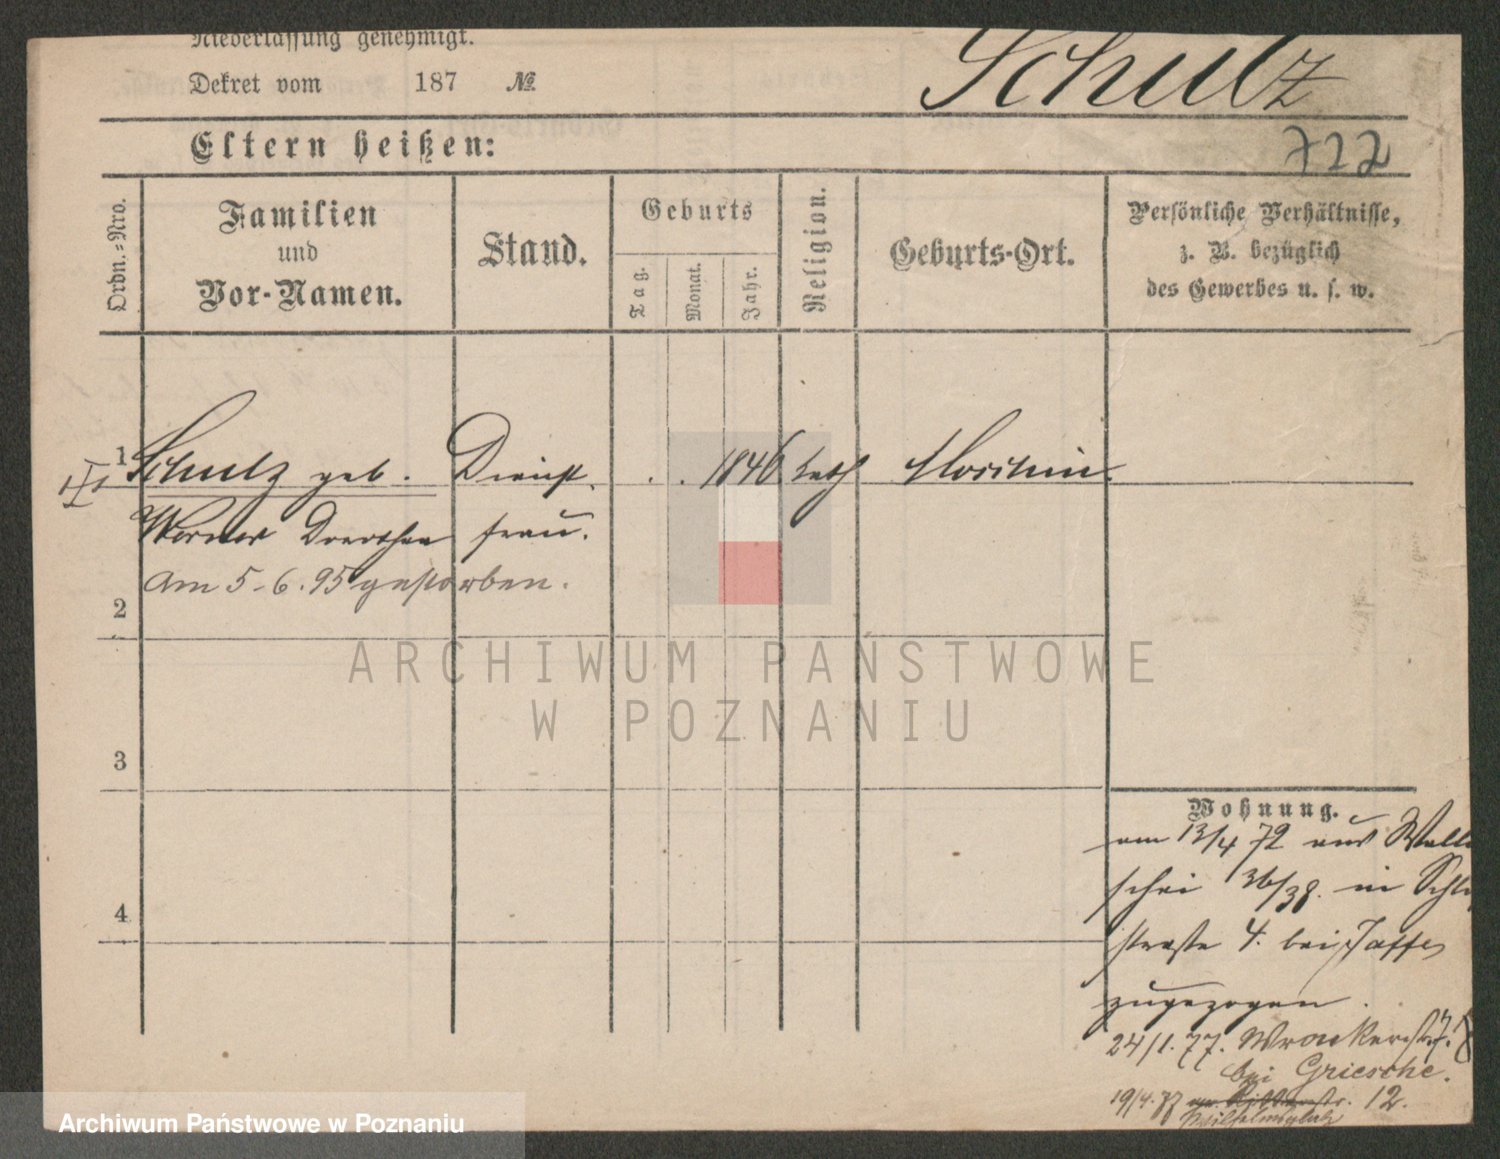 Niederlassung genehmigt.
Dekret vom 187 №
Schulz
Eltern heißen:
722
Ordn.=Nro.
Familien
und
Vor-Namen.
Stand.
Geburts
Tag.
Monat.
Jahr.
Religion.
Geburts-Ort.
Persönliche Verhältnisse,
z. B. bezüglich
des Gewerbes u. s. w.
1 Schulz geb. Dienst . . 1846 kath
Werner Dorothea frau.
am 5-6.95 gestorben.
2
3
4
Wohnung.
am 13/4 72 aus
36/38. in
straße 4. bei Jaffe
zugezogen.
24/1.77. Wronkerstr.
bei Griesche.
19/4. 12.
Wilhelmsplatz
ARCHIWUM PAŃSTWOWE
W POZNANIU
Archiwum Państwowe w Poznaniu